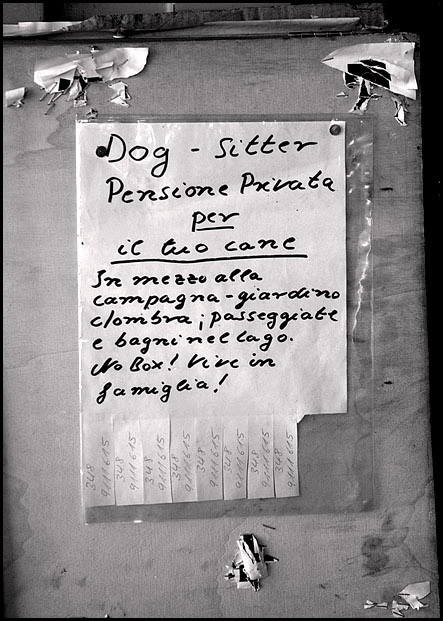 Dog - Sitter
Pensione Privata
per
il tuo cane
In mezzo alla
campagna - giardino
c/ombra; passeggiate
e bagni nel lago.
No Box! Vive in
famiglia!
348
9111615
348
9111615
348
9111615
348
9111615
348
9111615
348
9111615
348
9111615